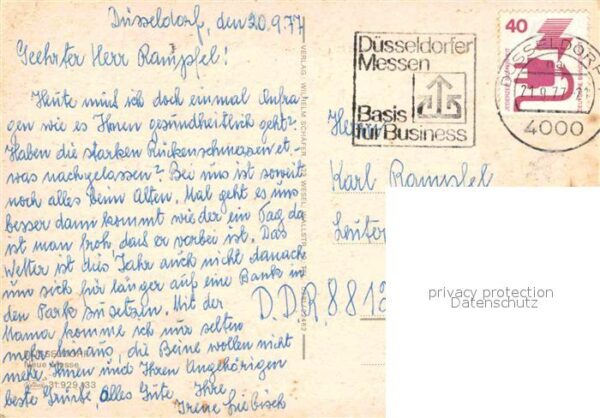 Düsseldorf, den 20.9.77
Geehrter Herr Rampfel!
Heute muß ich doch einmal Anfra
gen wie es Ihnen gesundheitlich geht?
Haben die starken Rückenschmerzen et-
was nachgelassen? Bei uns ist soweit
noch alles beim Alten. Mal geht es uns
besser dann kommt wieder ein Tag da
ist man froh, daß er vorbei ist. Das
Wetter ist dies Jahr auch nicht danach
um sich für länger auf eine Bank in
den Park zu setzen. Mit der
Mama komme ich nur selten
mehr hinaus, die Beine wollen nicht
mehr. Ihnen und Ihren Angehörigen
beste Grüße, alles Gute. Ihre
Irene Liebisch
Neue Messe
31.929.133
VERLAG: WILHELM SCHÄFER
WESEL
Düsseldorfer
Messen
Basis
für Business
40
DÜSSELDORF
21.9.77
4000
Herrn
Karl Rampfel
DDR, 881
privacy protection
Datenschutz